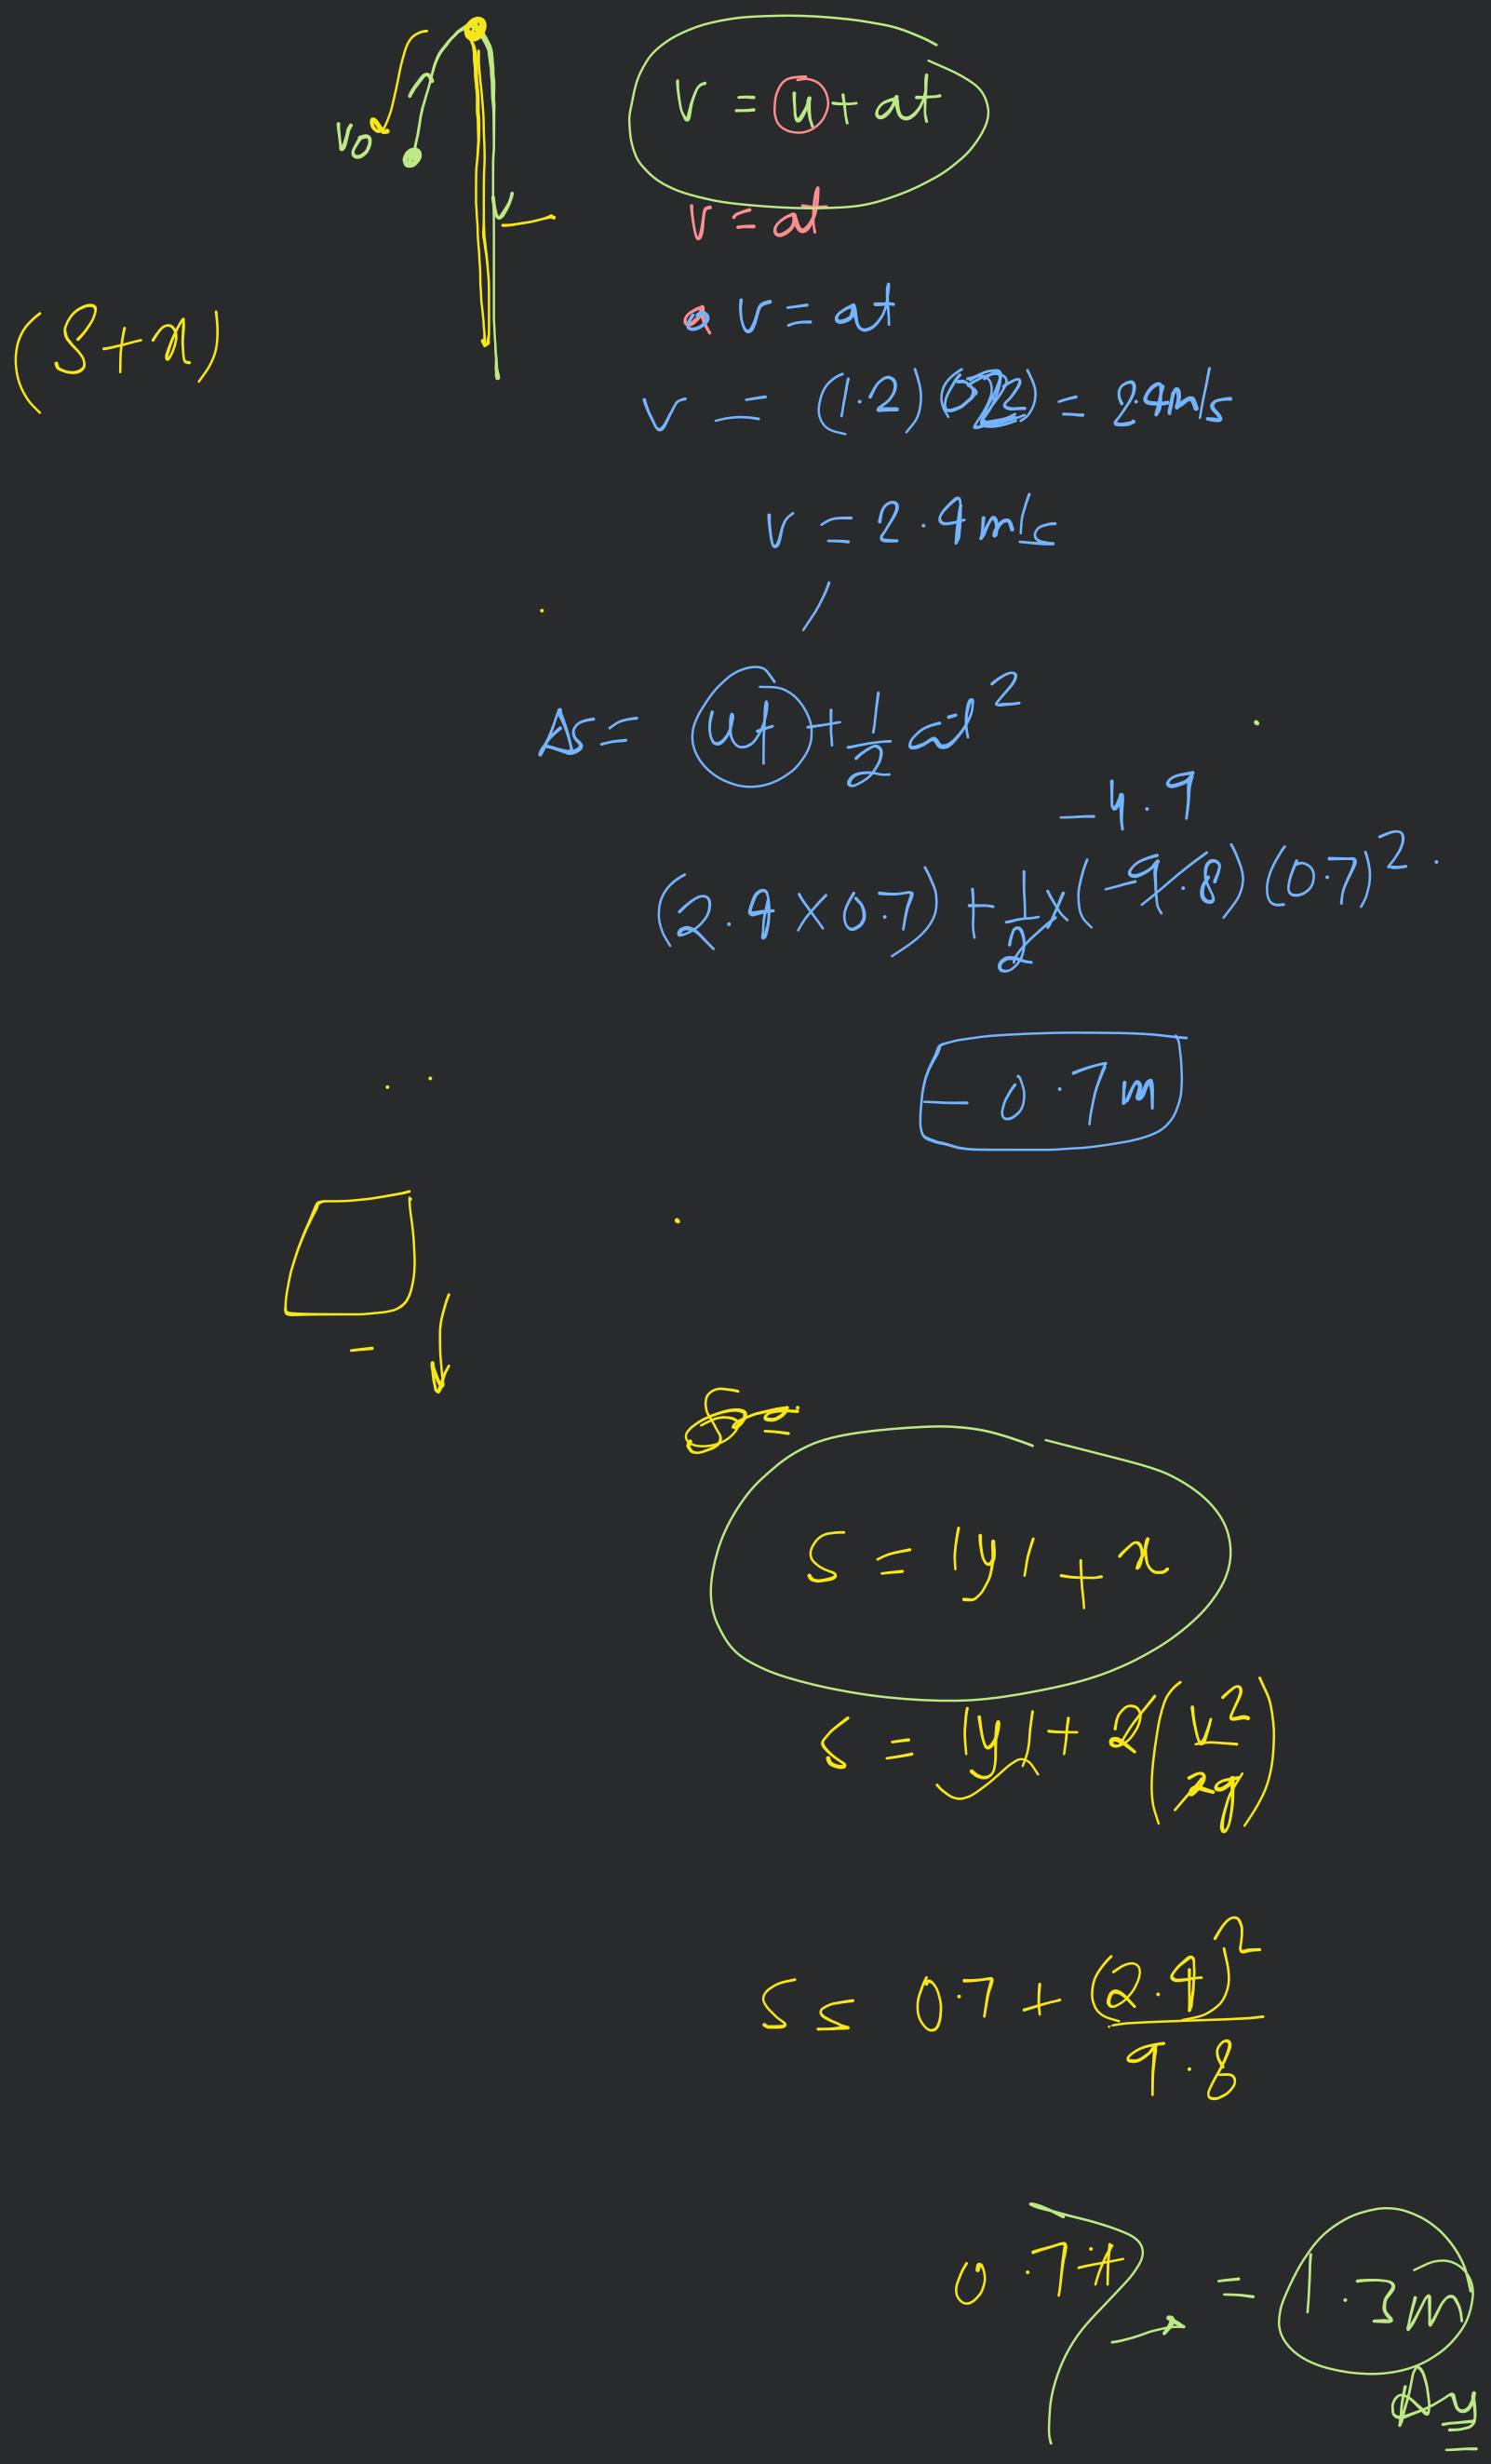 v = u + at
v₀
v = at
v = at
(S + x)
v = (1.2)(2) = 2.4m/s
v = 2.4m/s
Δs = ut + 1/2 at²
-4.9
(2.4 × 0.7) + 1/2 × (-9.8)(0.7)²
-0.7m
S = |y| + x
S = |y| + 2(u²/2g)
S = 0.7 + (2.4)²/9.8
0.7+
= 1.3m